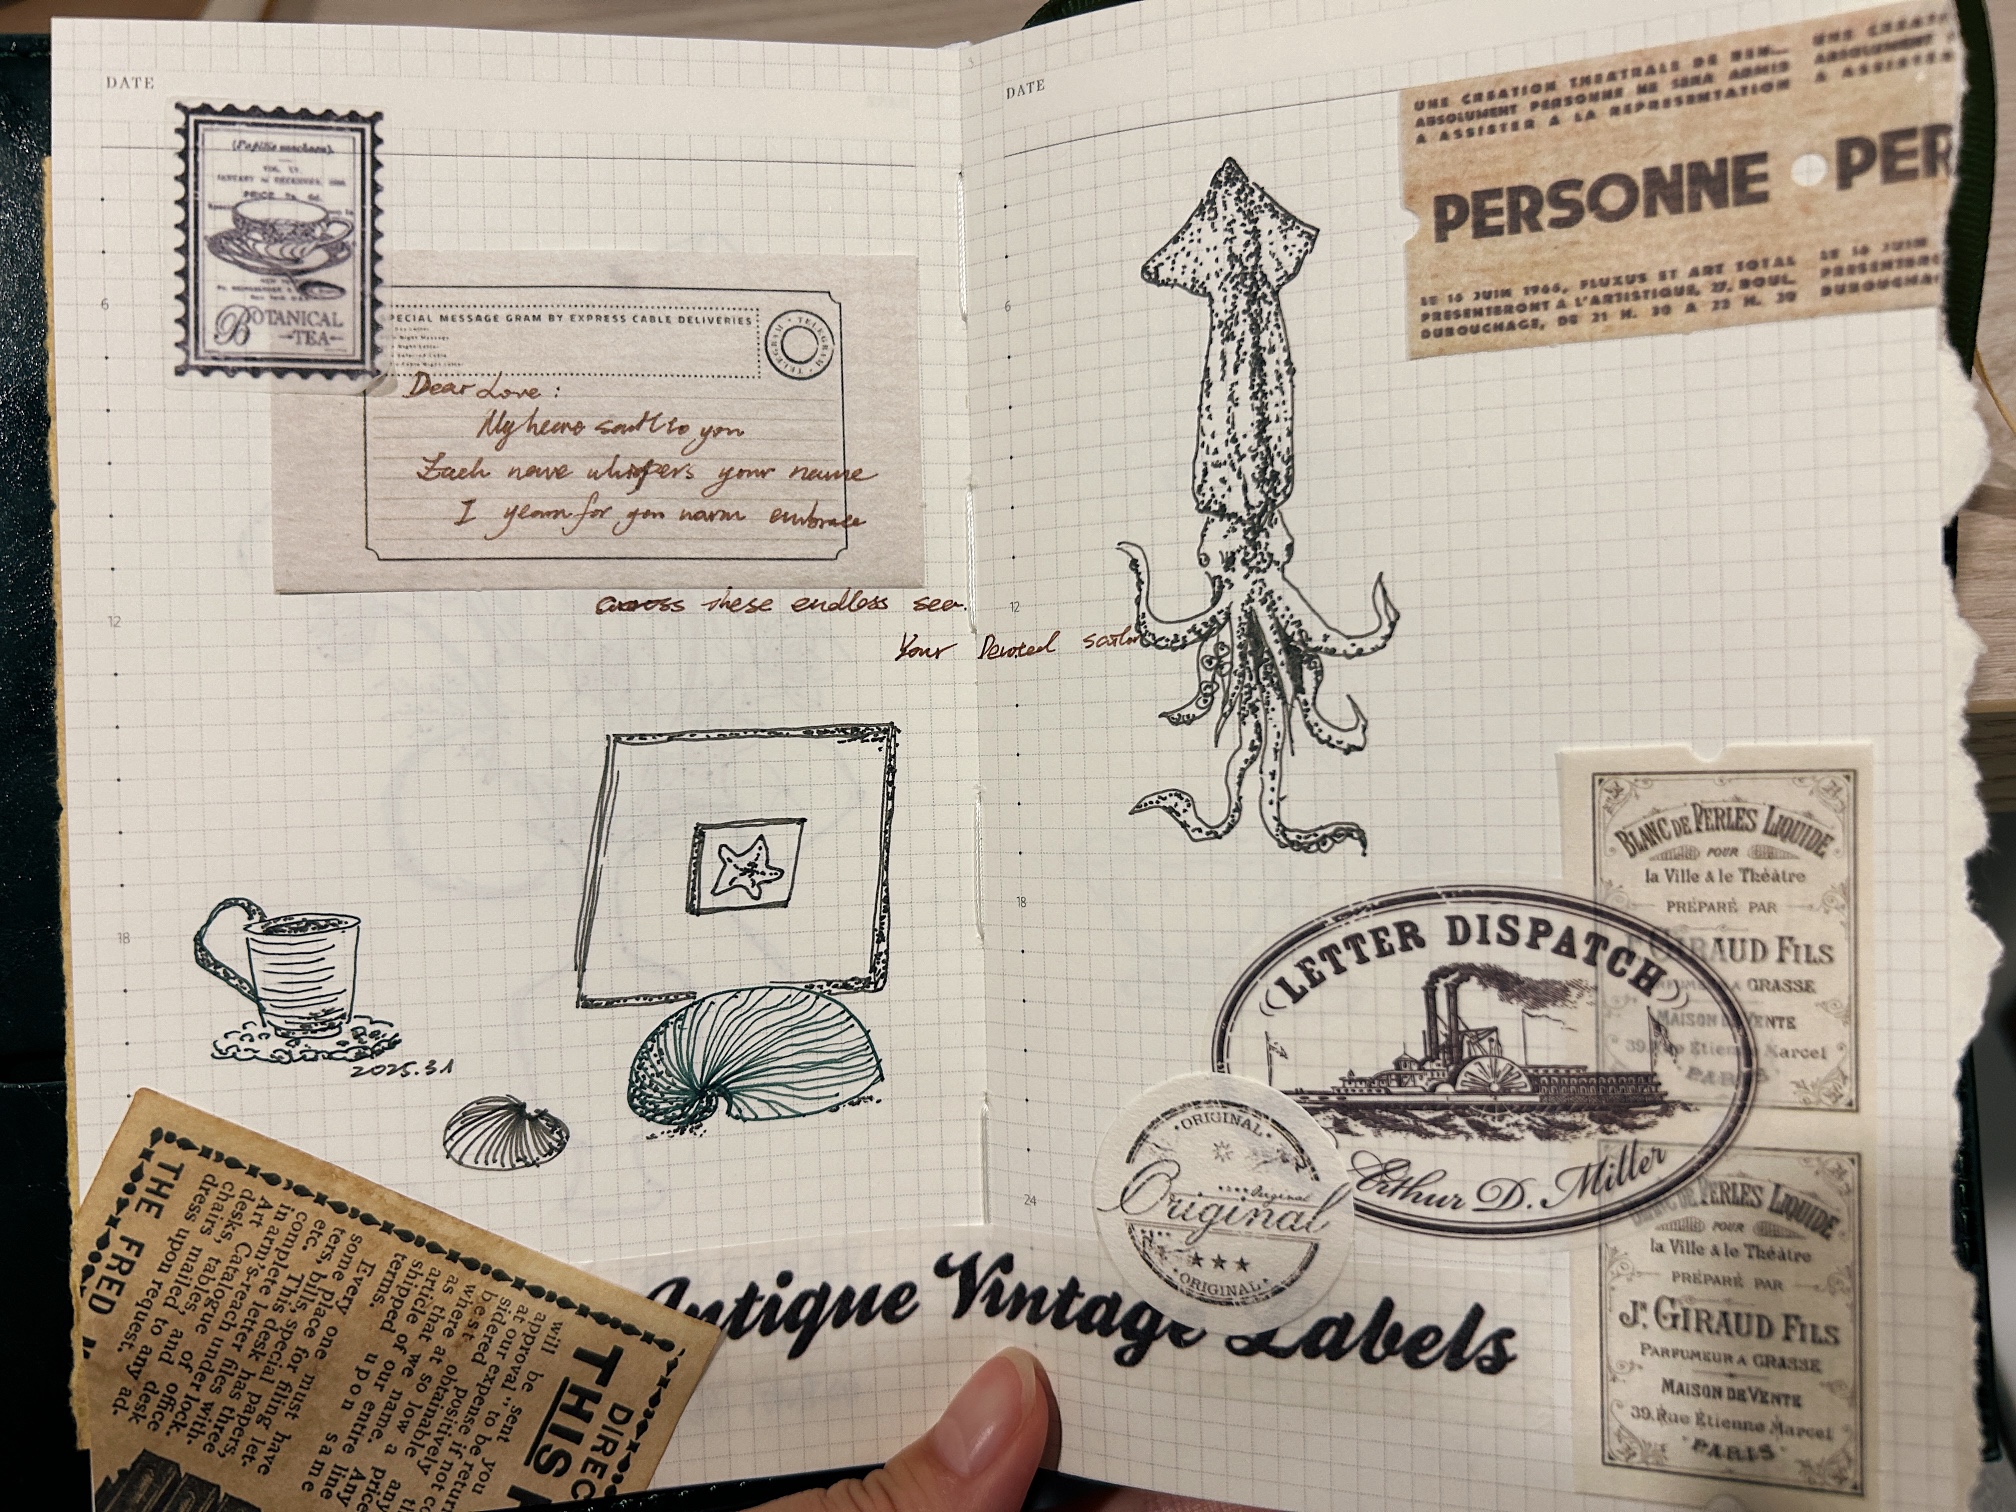 DATE
(Papilio machaon).
VOL. IV.
JANUARY to DECEMBER,
PRICE 7s. 6d.
BOTANICAL
TEA
PECIAL MESSAGE GRAM BY EXPRESS CABLE DELIVERIES
TELEGRAM · TELEGRAM
Night Message
Night Letter
Dear Love:
My to you
Each whispers your name
I yearn for you warm embrace
across these endless sea.
Your Devoted sailor
6
12
18
2025.3.1
THE FRED
dress upon request.
chairs mailed to any ad-
desks, tables and desk
Art Catalogue of office
in arm's-reach under lock.
complete letter files with-
etc. This desk has three
ters, bills, special papers,
some place for filing let-
Every one must have
terms. upon same
shipped of our entire line
article that we name. Any
as where at so low a price
best obtainable positively
sidered expense if not
at our expense if not
approval, to be
will be sent you
THIS
DIREC
DATE
UNE CREATION THEATRALE DE BEN...
ABSOLUMENT PERSONNE NE SERA ADMIS
A ASSISTER A LA REPRESENTATION
UNE CREAT
ABSOLUMENT
A ASSISTE
PERSONNE PER
LE 16 JUIN 1966, FLUXUS ET ART TOTAL
PRESENTERONT A L'ARTISTIQUE, 27, BOUL.
DUBOUCHAGE, DE 21 H. 30 A 23 H. 30
LE 16 JUIN
PRESENTERO
DUBOUCHA
6
12
18
24
BLANC DE PERLES LIQUIDE
POUR
la Ville & le Théâtre
PRÉPARÉ PAR
GIRAUD FILS
GRASSE
MAISON DE VENTE
39, Rue Étienne Marcel
PARIS
LETTER DISPATCH
Arthur D. Miller
ORIGINAL
Original
Original
ORIGINAL
BLANC DE PERLES LIQUIDE
POUR
la Ville & le Théâtre
PRÉPARÉ PAR
Jn. GIRAUD FILS
PARFUMEUR A GRASSE
MAISON DE VENTE
39, Rue Étienne Marcel
PARIS
Antique Vintage Labels